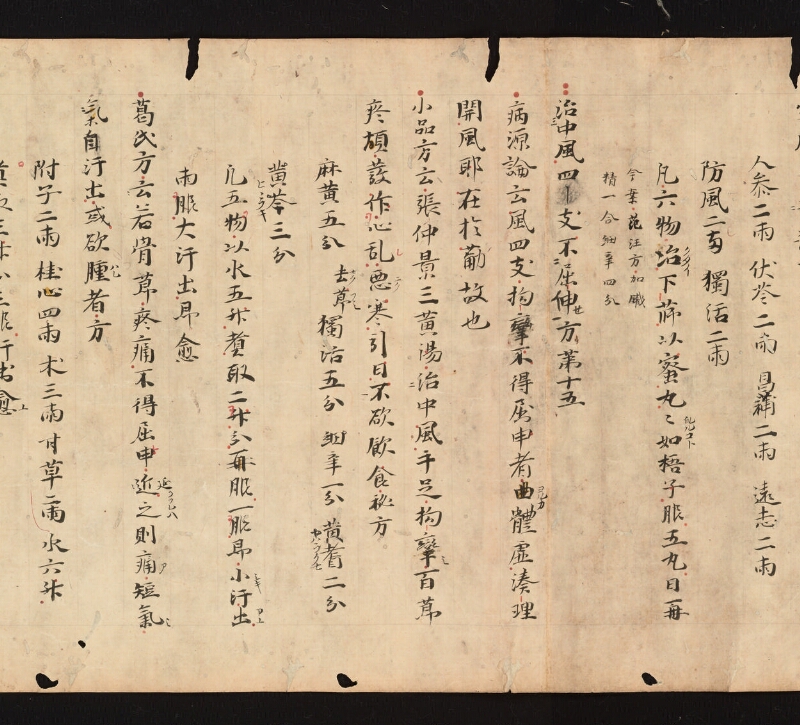 人参二兩 伏苓二兩 昌蒲二兩 遠志二兩
防風二兩 獨活二兩
凡六物治下篩以蜜丸〻如梧子服五丸日再
今案范汪方加
精一合細辛四分
治中風四支不屈伸方第十五
病源論云風四支拘攣不得屈申者由體虛湊理
開風耶在於故也
小品方云張仲景三黄湯治中風手足拘攣百節
疼煩發作心乱惡寒引日不欲飲食秘方
麻黄五分 去節 獨活五分 細辛一分 黄耆二分
黄芩三分
凡五物以水五升煮取二升分再服一服即小汗出
兩服大汗出即愈
葛氏方云若骨節疼痛不得屈申近之則痛短氣
氣自汗出或欲腫者方
附子二兩 桂心四兩 术三兩 甘草二兩 水六升